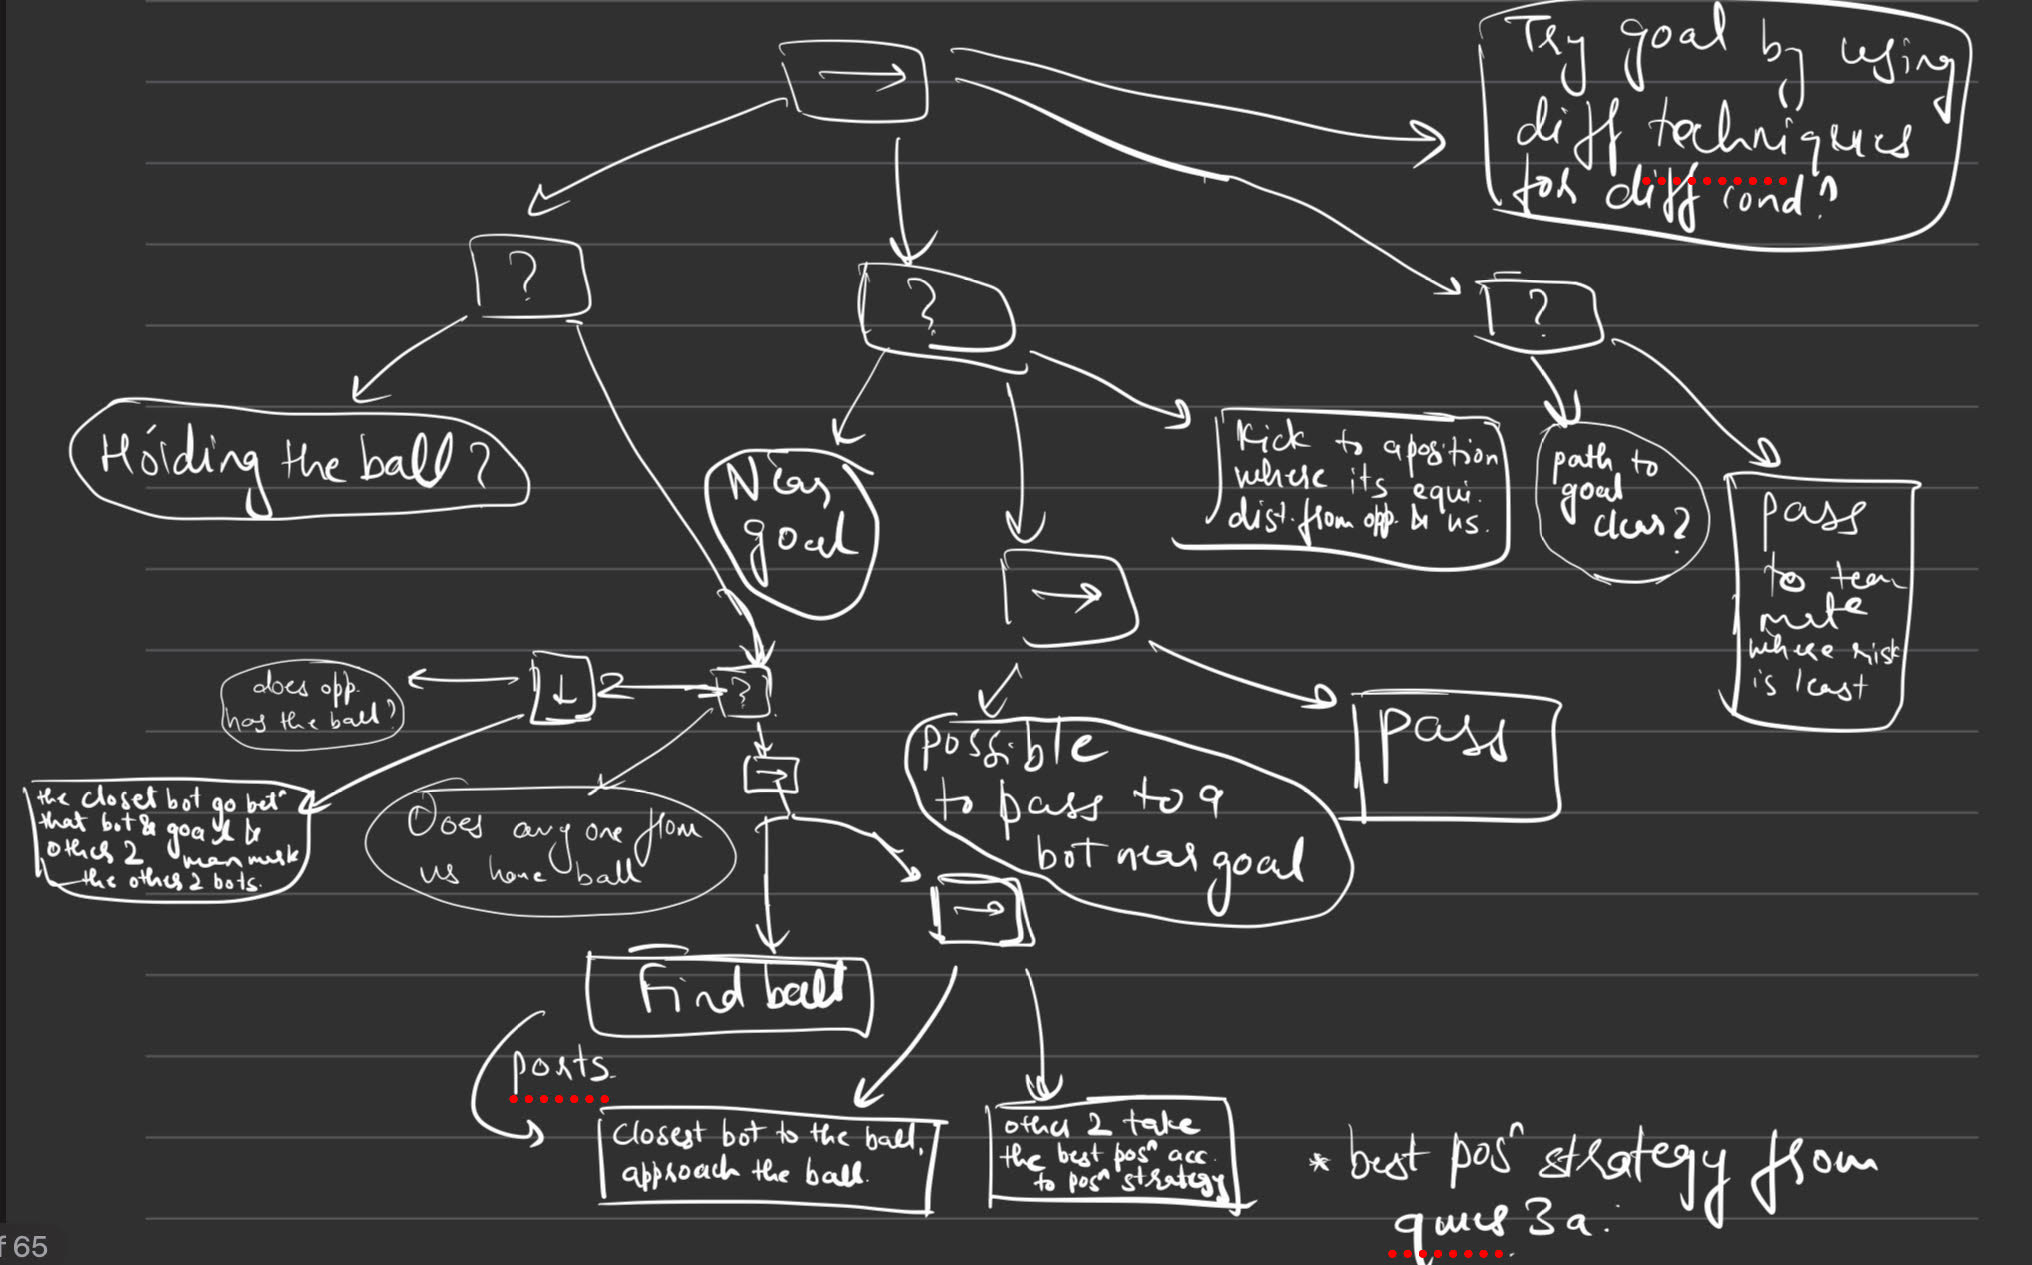 Try goal by using
diff techniques
for diff cond?
?
?
?
Holding the ball?
Near
goal
Kick to a position
where its equi.
dist. from opp. & us.
path to
goal
clear?
pass
to team
mate
where risk
is least
does opp.
has the ball?
2
?
pass
possible
to pass to a
bot near goal
the closet bot go betn
that bot & goal &
other 2 man mark
the other 2 bots.
Does any one from
us have ball
Find ball
posts.
closest bot to the ball,
approach the ball.
other 2 take
the best posn acc.
to posn strategy
* best posn strategy from
ques 3a.
f 65